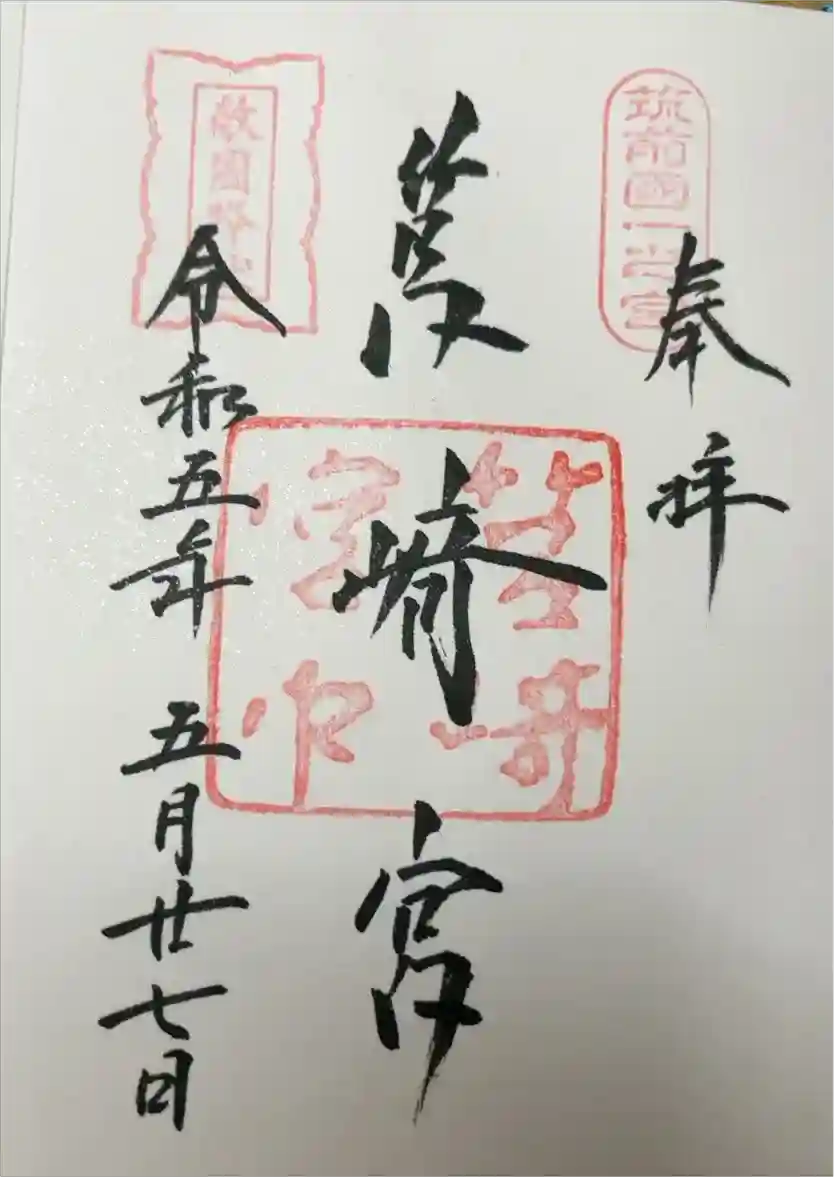 筑前國一之宮
奉拝
筥崎宮
筥崎
宮印
敵國降伏
令和五年 五月廿七日